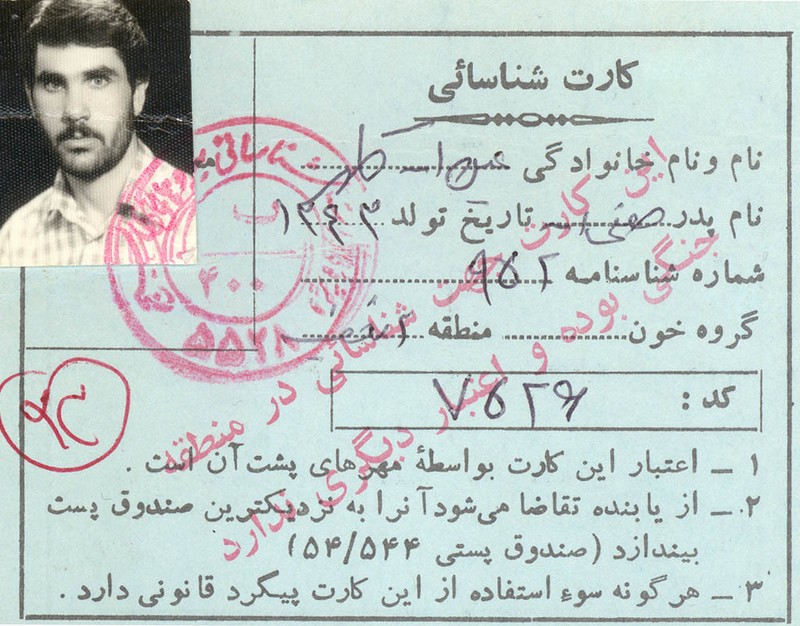 کارت شناسائی
نام و نام خانوادگی
نام پدر صفی‌اله تاریخ تولد ۱۳۴۳
شماره شناسنامه ۹۵۲
گروه خون منطقه
کد : ۷۵۲۶
۱ - اعتبار این کارت بواسطهٔ مهرهای پشت آن است .
۲ - از یابنده تقاضا می‌شود آنرا به نزدیکترین صندوق پست
بیندازد (صندوق پستی ۵۴/۵۴۴)
۳ - هرگونه سوء استفاده از این کارت پیگرد قانونی دارد .
این کارت جهت شناسائی در منطقه
جنگی بوده و اعتبار دیگری ندارد
شناسائی
۴۰۰
۵۵۲۸